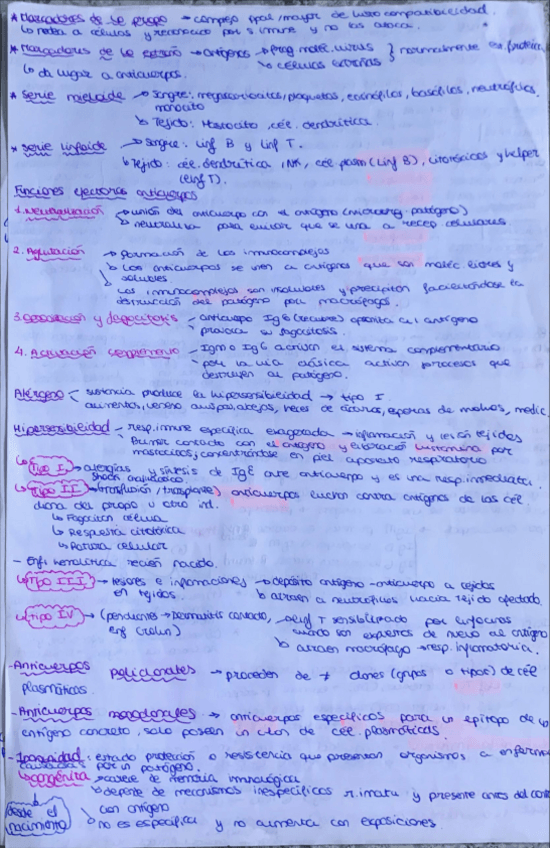 * Marcadores de lo propio → complejo ppal. mayor de histocompatibilidad.
↳ rodea a células y reconocido por s. inmune y no las ataca.
* Marcadores de lo extraño → antígenos → frag. moléc. virus } normalmente es. proteína
↳ células extrañas
↳ da lugar a anticuerpos.
* Serie mieloide → Sangre: megacariocitos, plaquetas, eosinófilos, basófilos, neutrófilos,
monocito
↳ Tejido: Mastocito, cél. dendrítica.
* Serie linfoide → Sangre: Linf B y Linf T.
↳ Tejido: cél. dendrítica, NK, cél plasm (Linf B), citotóxicos y helper
(Linf T).
Funciones efectoras anticuerpos
1. Neutralización → unión del anticuerpo con el antígeno (microorg. patógeno)
↳ neutraliza para evitar que se una a recep celulares
2. Aglutinación → formación de los inmunocomplejos
↳ Los anticuerpos se unen a antígenos que son moléc. libres y
solubles
Los inmunocomplejos son insolubles y precipitan facilitándose la
destrucción del patógeno por macrófagos.
3. Opsonización y fagocitosis → anticuerpo IgG (recubre) opsoniza al antígeno
↳ provoca su fagocitosis.
4. Activación complemento → IgM o IgG activan el sistema complementario
↳ por la vía clásica activan procesos que
destruyen al patógeno.
Alérgeno < sustancia produce la hipersensibilidad → tipo I
alimentos, veneno avispa, abejas, heces de ácaros, esporas de mohos, medic.
Hipersensibilidad → resp. inmune específica exagerada → inflamación y lesión tejidos
Primer contacto con el antígeno y liberación histamina por
mastocitos, concentrándose en piel aparato respiratorio
↳ Tipo I → alergias y síntesis de IgE ante anticuerpo y es una resp. inmediata.
Shock anafiláctico
↳ Tipo II → (transfusión / transplante) anticuerpos luchan contra antígenos de las cél
diana del propio u otro ind.
↳ Fagocitan célula
↳ Respuesta citotóxica
↳ Rotura celular
- Enf. hemolítica recién nacido.
↳ Tipo III → lesiones e inflamaciones → depósito antígeno-anticuerpo a tejidos
en tejidos. ↳ atraen a neutrófilos hacia tejido afectado.
↳ Tipo IV → (pendientes → Dermatitis contacto, T sensibilizado por linfocinas
enf Crohn) cuando son expuestos de nuevo al antígeno
↳ atraen macrófago → resp. inflamatoria.
- Anticuerpos policlonales → proceden de ≠ clones (grupos o tipos) de cél
plasmáticas.
- Anticuerpos monoclonales → anticuerpos específicos para un epítopo de un
antígeno concreto, solo poseen un clon de cél. plasmáticas.
- Inmunidad: estado protección o resistencia que presentan organismos, a enferme
causadas por un patógeno.
↳ congénita → carece de memoria inmunológica
↳ depende de mecanismos inespecíficos r. innata y presente antes del cont
desde el con antígeno
nacimiento ↳ no es específica y no aumenta con exposiciones.